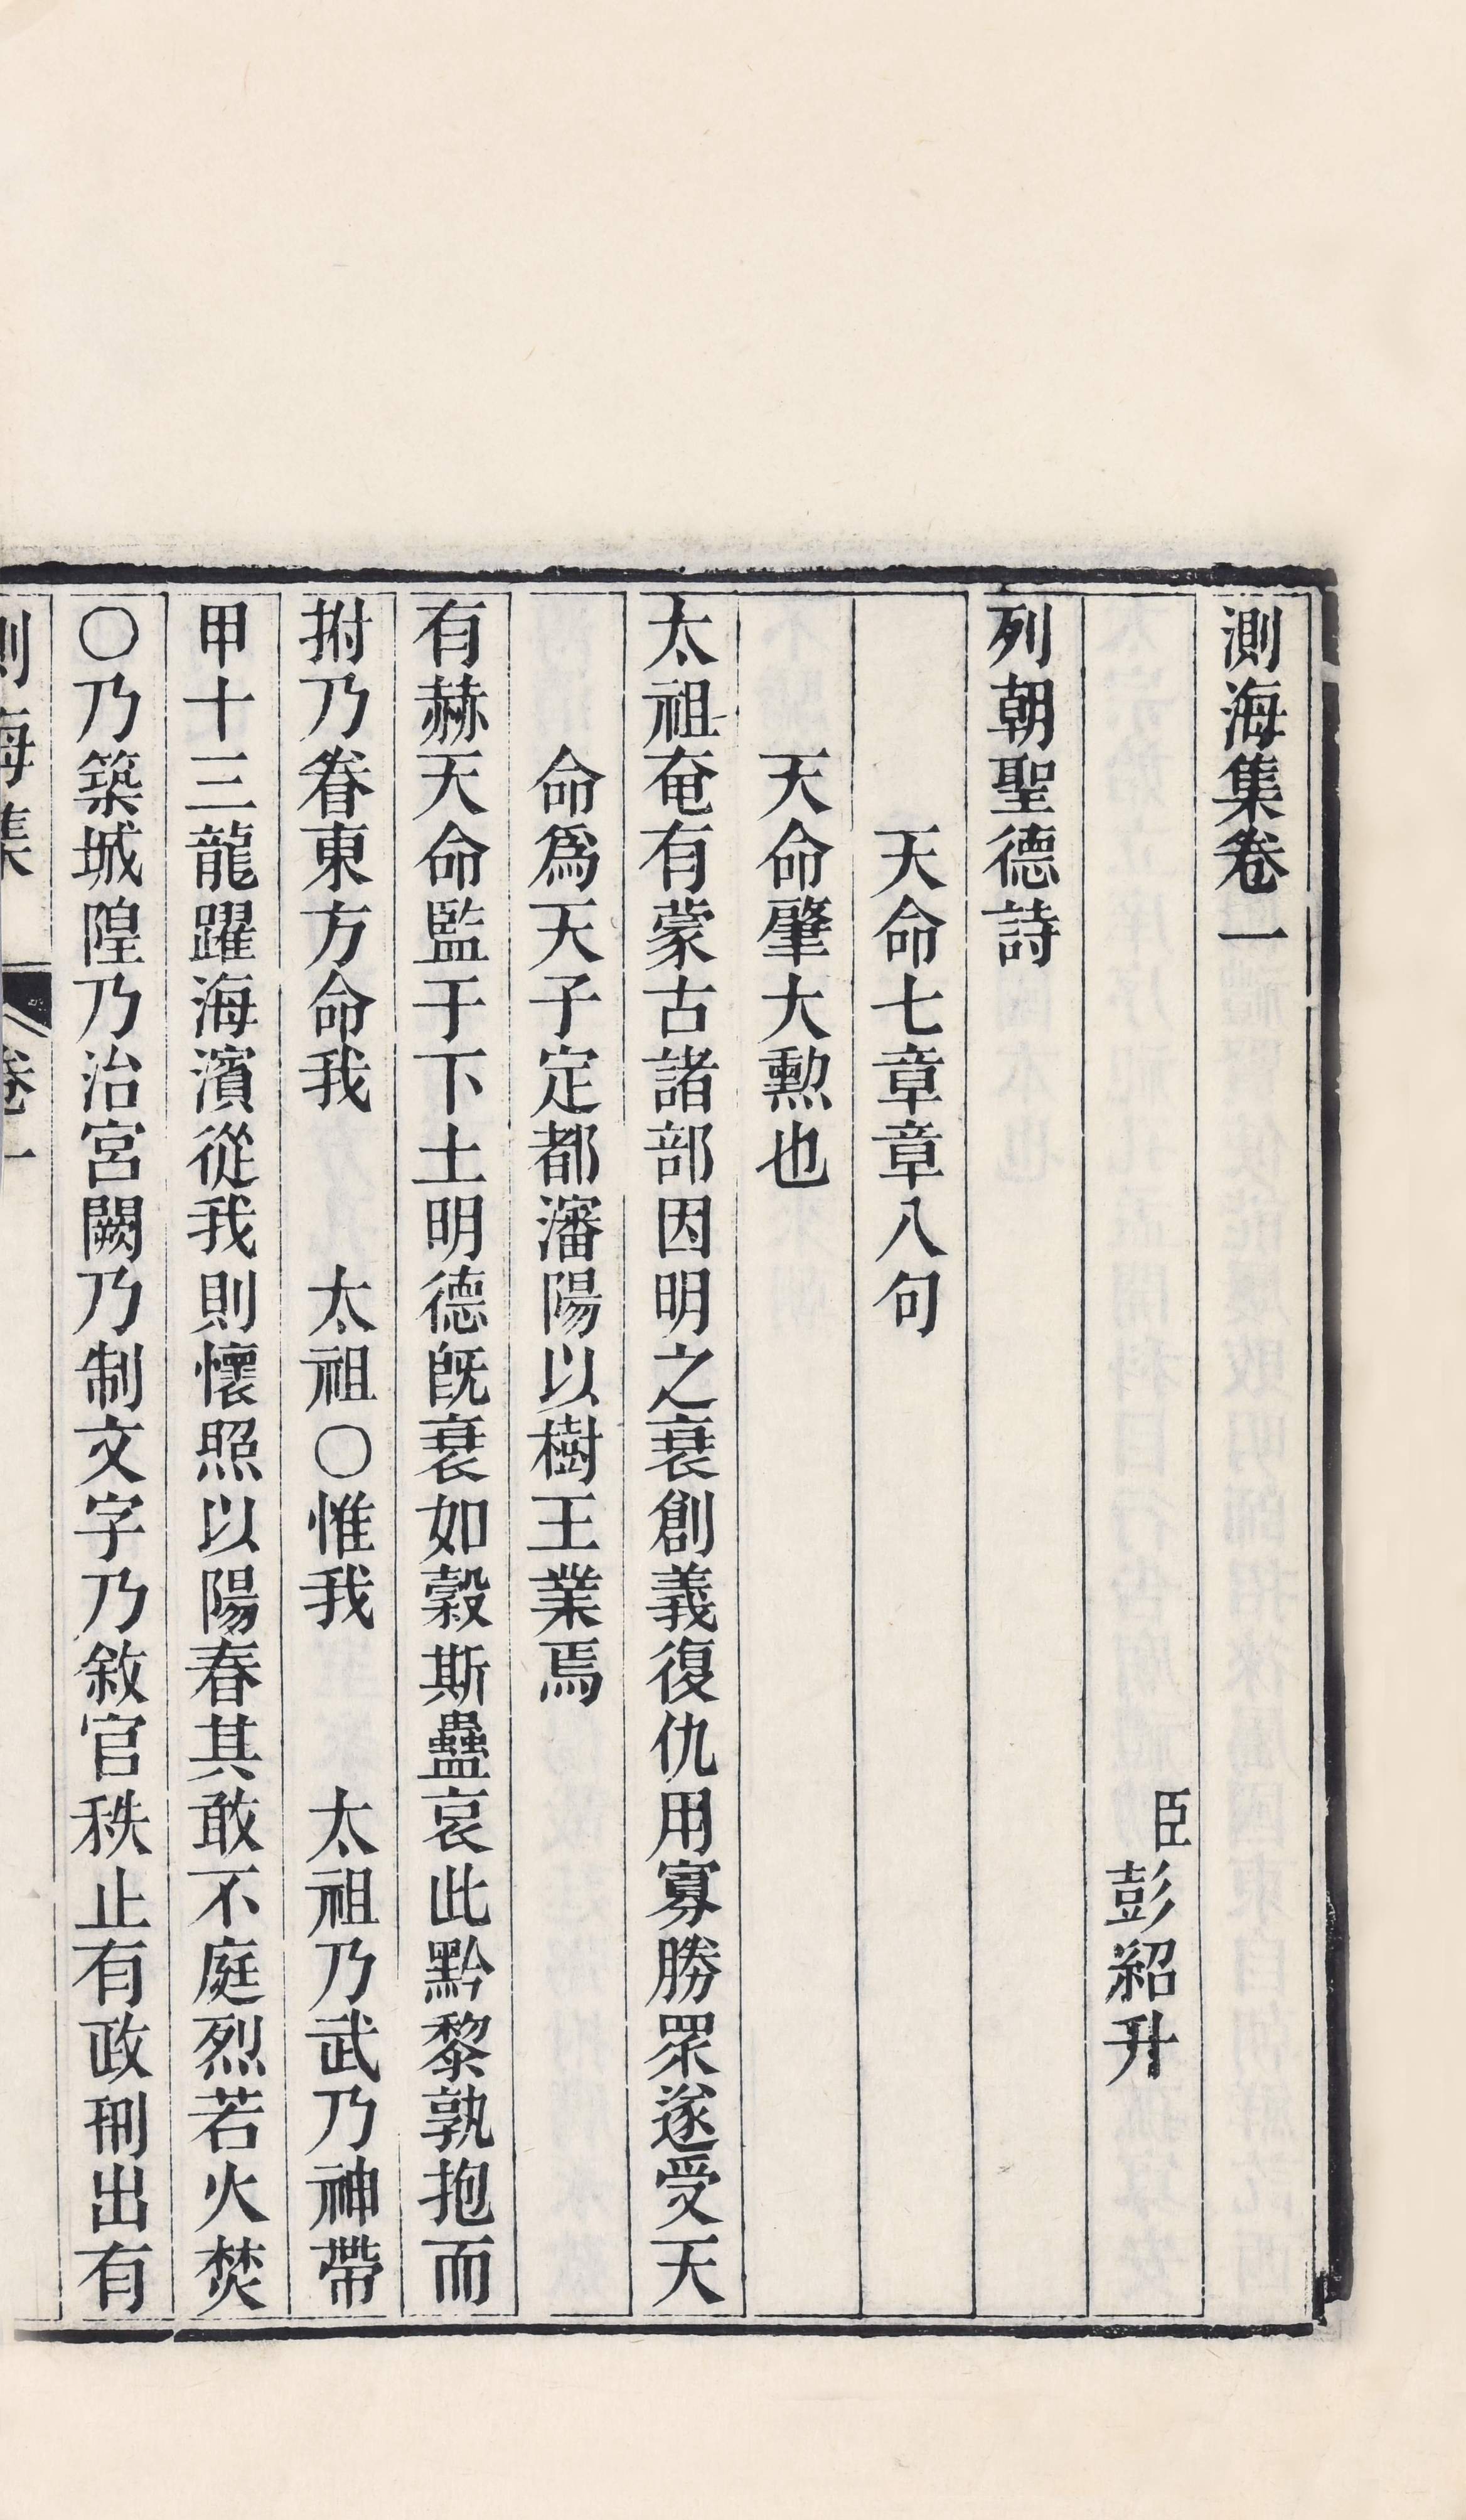 測海集卷一
臣彭紹升
列朝聖德詩
天命七章章八句
天命肇大勲也
太祖奄有蒙古諸部因明之衰創義復仇用寡勝眾遂受天
命爲天子定都瀋陽以樹王業焉
有赫天命監于下土明德旣衰如穀斯蠱哀此黔黎孰抱而
拊乃眷東方命我 太祖○惟我 太祖乃武乃神帶
甲十三龍躍海濱從我則懷照以陽春其敢不庭烈若火焚
○乃築城隍乃治宮闕乃制文字乃敘官秩止有政刑出有
測海集 卷一